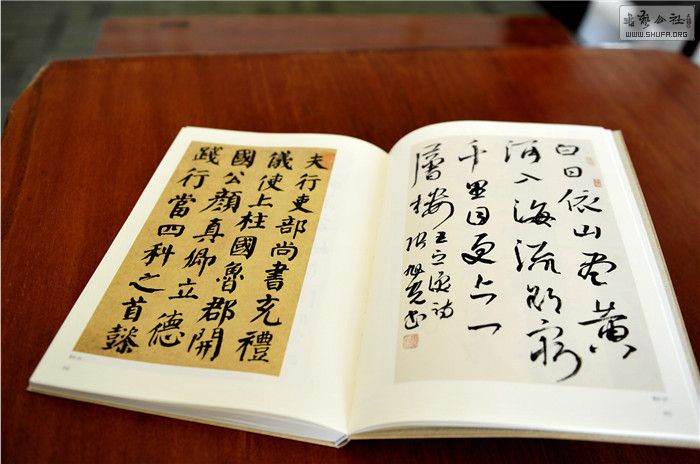 書藝公社
WWW.SHUFA.ORG
夫行吏部尚書充禮
儀使上柱國魯郡開
國公顏真卿立德
踐行當四科之首懿
白日依山尽黄
河入海流欲窮
千里目更上一
層楼
王之渙詩
張旭光书